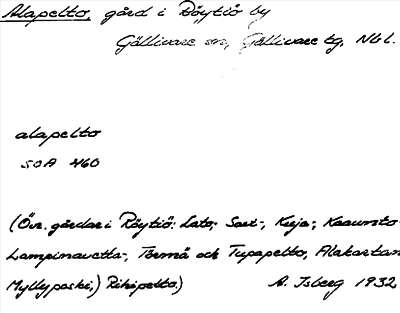 Alapelto, gård i Röytiö by
Gällivare sn, Gällivare tg, Nbl.
alapelto
SOA 460
(Övr. gårdar i Röytiö: Lato-, Sari-, Kuja-,
Lampinavetta-, Törmä och Tupapelto,
Myllypaski,) Rihipelto.) A. Isberg 1932